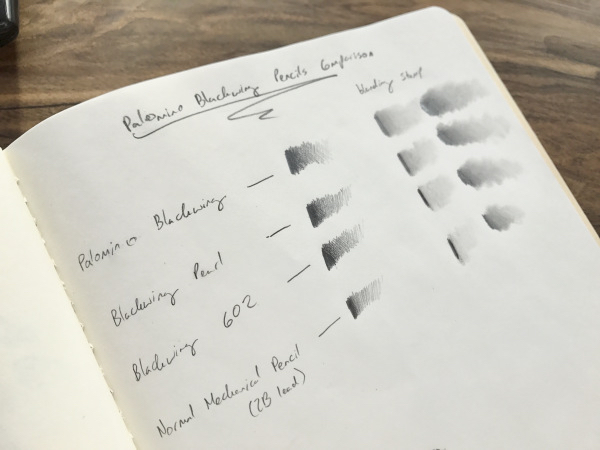 Palomino Blackwing Pencils Comparison
Blending Stump
Palomino Blackwing
Blackwing Pearl
Blackwing 602
Normal Mechanical Pencil
(2B lead)